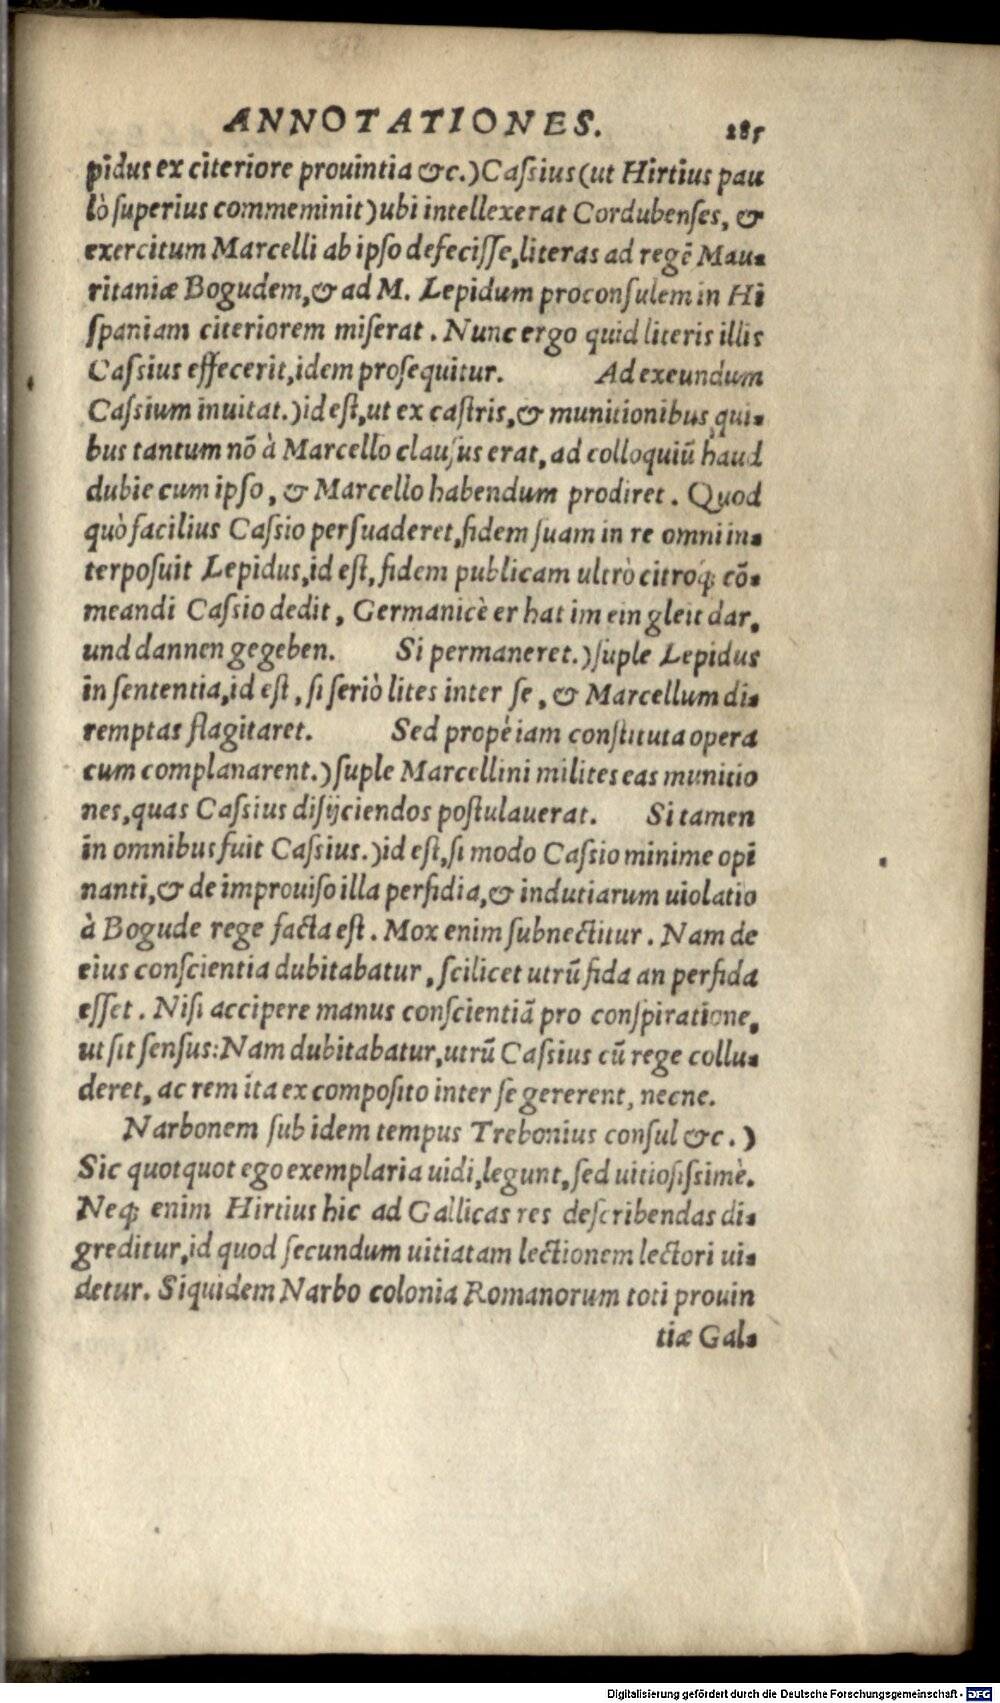 ANNOTATIONES. 185
pidus ex citeriore prouintia &c.) Cassius (ut Hirtius pau
lò superius commeminit) ubi intellexerat Cordubenses, &
exercitum Marcelli ab ipso defecisse, literas ad regẽ Mau-
ritaniæ Bogudem, & ad M. Lepidum proconsulem in Hi
spaniam citeriorem miserat. Nunc ergo quid literis illis
Cassius effecerit, idem prosequitur. Ad exeundum
Cassium inuitat.) id est, ut ex castris, & munitionibus qui-
bus tantum nõ à Marcello clausus erat, ad colloquiũ haud
dubie cum ipso, & Marcello habendum prodiret. Quod
quò facilius Cassio persuaderet, fidem suam in re omni in-
terposuit Lepidus, id est, fidem publicam ultrò citroq́; cõ-
meandi Cassio dedit, Germanicè er hat im ein gleit dar,
und dannen gegeben. Si permaneret.) suple Lepidus
in sententia, id est, si seriò lites inter se, & Marcellum di-
remptas flagitaret. Sed propè iam constituta opera
cum complanarent.) suple Marcellini milites eas munitio
nes, quas Cassius disijciendos postulauerat. Si tamen
in omnibus fuit Cassius.) id est, si modo Cassio minime opi
nanti, & de improuiso illa perfidia, & indutiarum uiolatio
à Bogude rege facta est. Mox enim subnectitur. Nam de
eius conscientia dubitabatur, scilicet utrũ fida an perfida
esset. Nisi accipere manus conscientiã pro conspiratione,
ut sit sensus: Nam dubitabatur, utrũ Cassius cũ rege collu-
deret, ac rem ita ex composito inter se gererent, necne.
Narbonem sub idem tempus Trebonius consul &c.)
Sic quotquot ego exemplaria uidi, legunt, sed uitiosissimè.
Neq; enim Hirtius hic ad Gallicas res describendas di-
greditur, id quod secundum uitiatam lectionem lectori ui-
detur. Siquidem Narbo colonia Romanorum toti prouin
tiæ Gal-
Digitalisierung gefördert durch die Deutsche Forschungsgemeinschaft - DFG